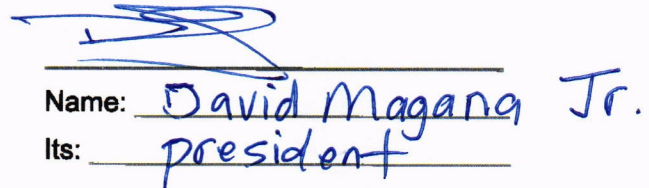 Name: David Magana Jr.
Its: president